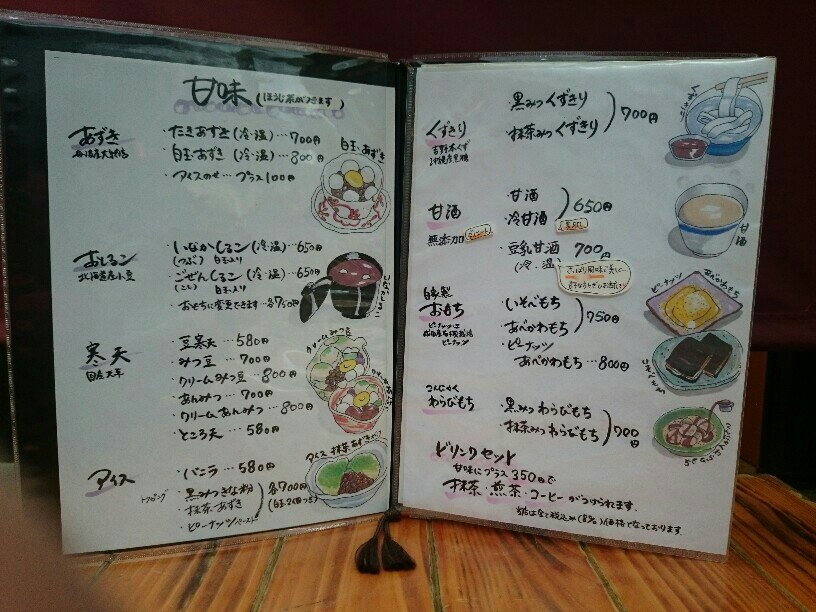 甘味 (ほうじ茶がつきます)
あずき
・たきあずき (冷・温) … 700円
・白玉あずき (冷・温) … 800円
・アイスのせ … プラス100円
白玉あずき
おしるこ
北海道産小豆
・いなかしるこ (冷・温) … 650円
(つぶ) 白玉入り
・ごぜんしるこ (冷・温) … 650円
(こし) 白玉入り
・おもちに変更できます … 各750円
いなかしるこ
寒天
国産天草
・豆寒天 … 580円
・みつ豆 … 700円
・クリームみつ豆 … 800円
・あんみつ … 700円
・クリームあんみつ … 800円
・ところ天 … 580円
クリームみつ豆
アイス
・バニラ … 580円
トッピング
・黒みつきな粉
・抹茶あずき
・ピーナッツペースト
各700円
(白玉2個つき)
アイス 抹茶あずき
くずきり
吉野本くず
・黒みつくずきり
・抹茶みつくずきり
700円
くずきり
甘酒
無添加
・甘酒
・冷甘酒
650円
・豆乳甘酒 700円
(冷・温)
甘酒
自家製
おもち
・いそべもち
・あべかわもち
750円
・ピーナッツ
あべかわもち … 800円
ピーナッツ
あべかわもち
いそべもち
こんにゃく
わらびもち
・黒みつわらびもち
・抹茶みつわらびもち
700円
ドリンクセット
甘味にプラス350円で
抹茶・煎茶・コーヒーがつけられます。